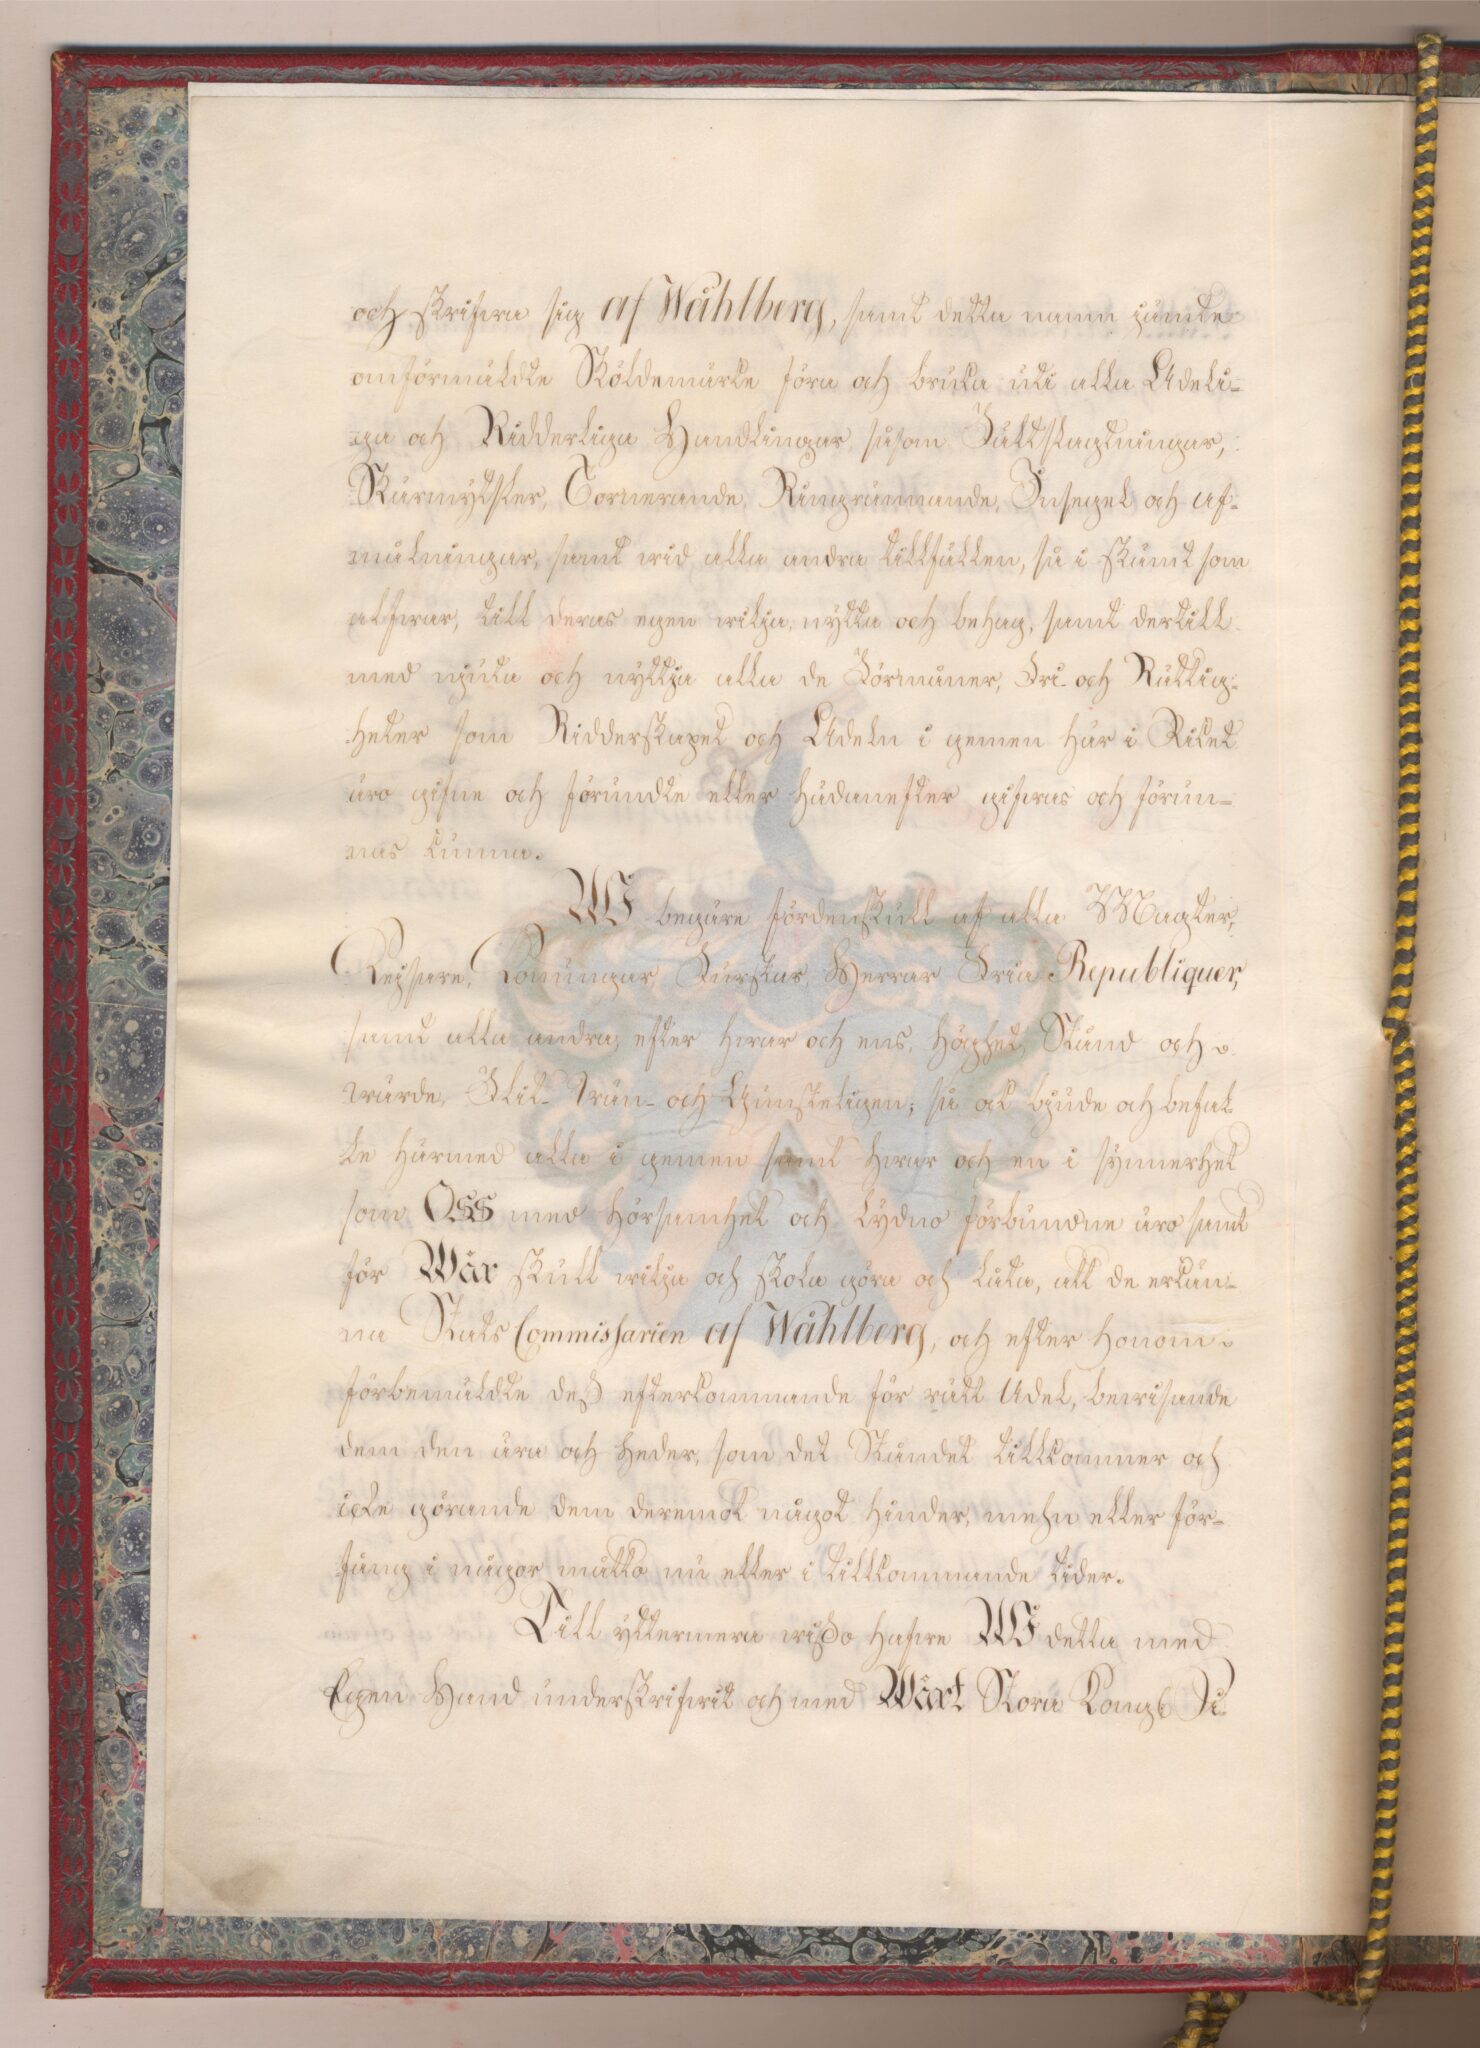 och skrifwa sig af Wåhlberg, samt detta namn jämte
anförmäldte Sköldemärke föra och bruka uti alla Adeli-
ga och Ridderliga Handlingar såsom Fältslagtningar,
Skärmytsler, Tornerande, Ringrännande, Insegel och af-
målningar, samt wid alla andra tillfällen, så i skämt som
alfwar, till deras egen wilja, nytta och behag, samt dertill
med njuta och nyttja alla de Förmåner, Fri- och Rättig-
heter som Ridderskapet och Adeln i gemen här i Riket
äro gifne och förundte eller hädanefter gifwas och förun-
nas kunna.
WJ begäre fördenskull af alla Magter,
Keisare, Konungar, Furstar, Herrar Fria Republiquer,
samt alla andra, efter hwar och ens, Höghet, Stånd och
wärde, Flit- Wän- och Gunsteligen; så ock bjude och befal-
le härmed alla i gemen samt hwar och en i synnerhet
som OSS med hörsamhet och lydno förbundne äro samt
för Wår skull wilja och skola göra och låta, att de erkän-
na Stats Commissarien af Wåhlberg, och efter honom
förbemäldte deß efterkommande för rätt Adel, bewisande
dem den ära och heder, som det Ståndet tillkommer och
icke görande dem deremot något hinder, mehn eller för-
fång i någor måtto nu eller i tillkommande tider.
Till yttermera wißo hafwe WJ detta med
Egen Hand underskrifwit och med Wårt Stora Kongl Si-